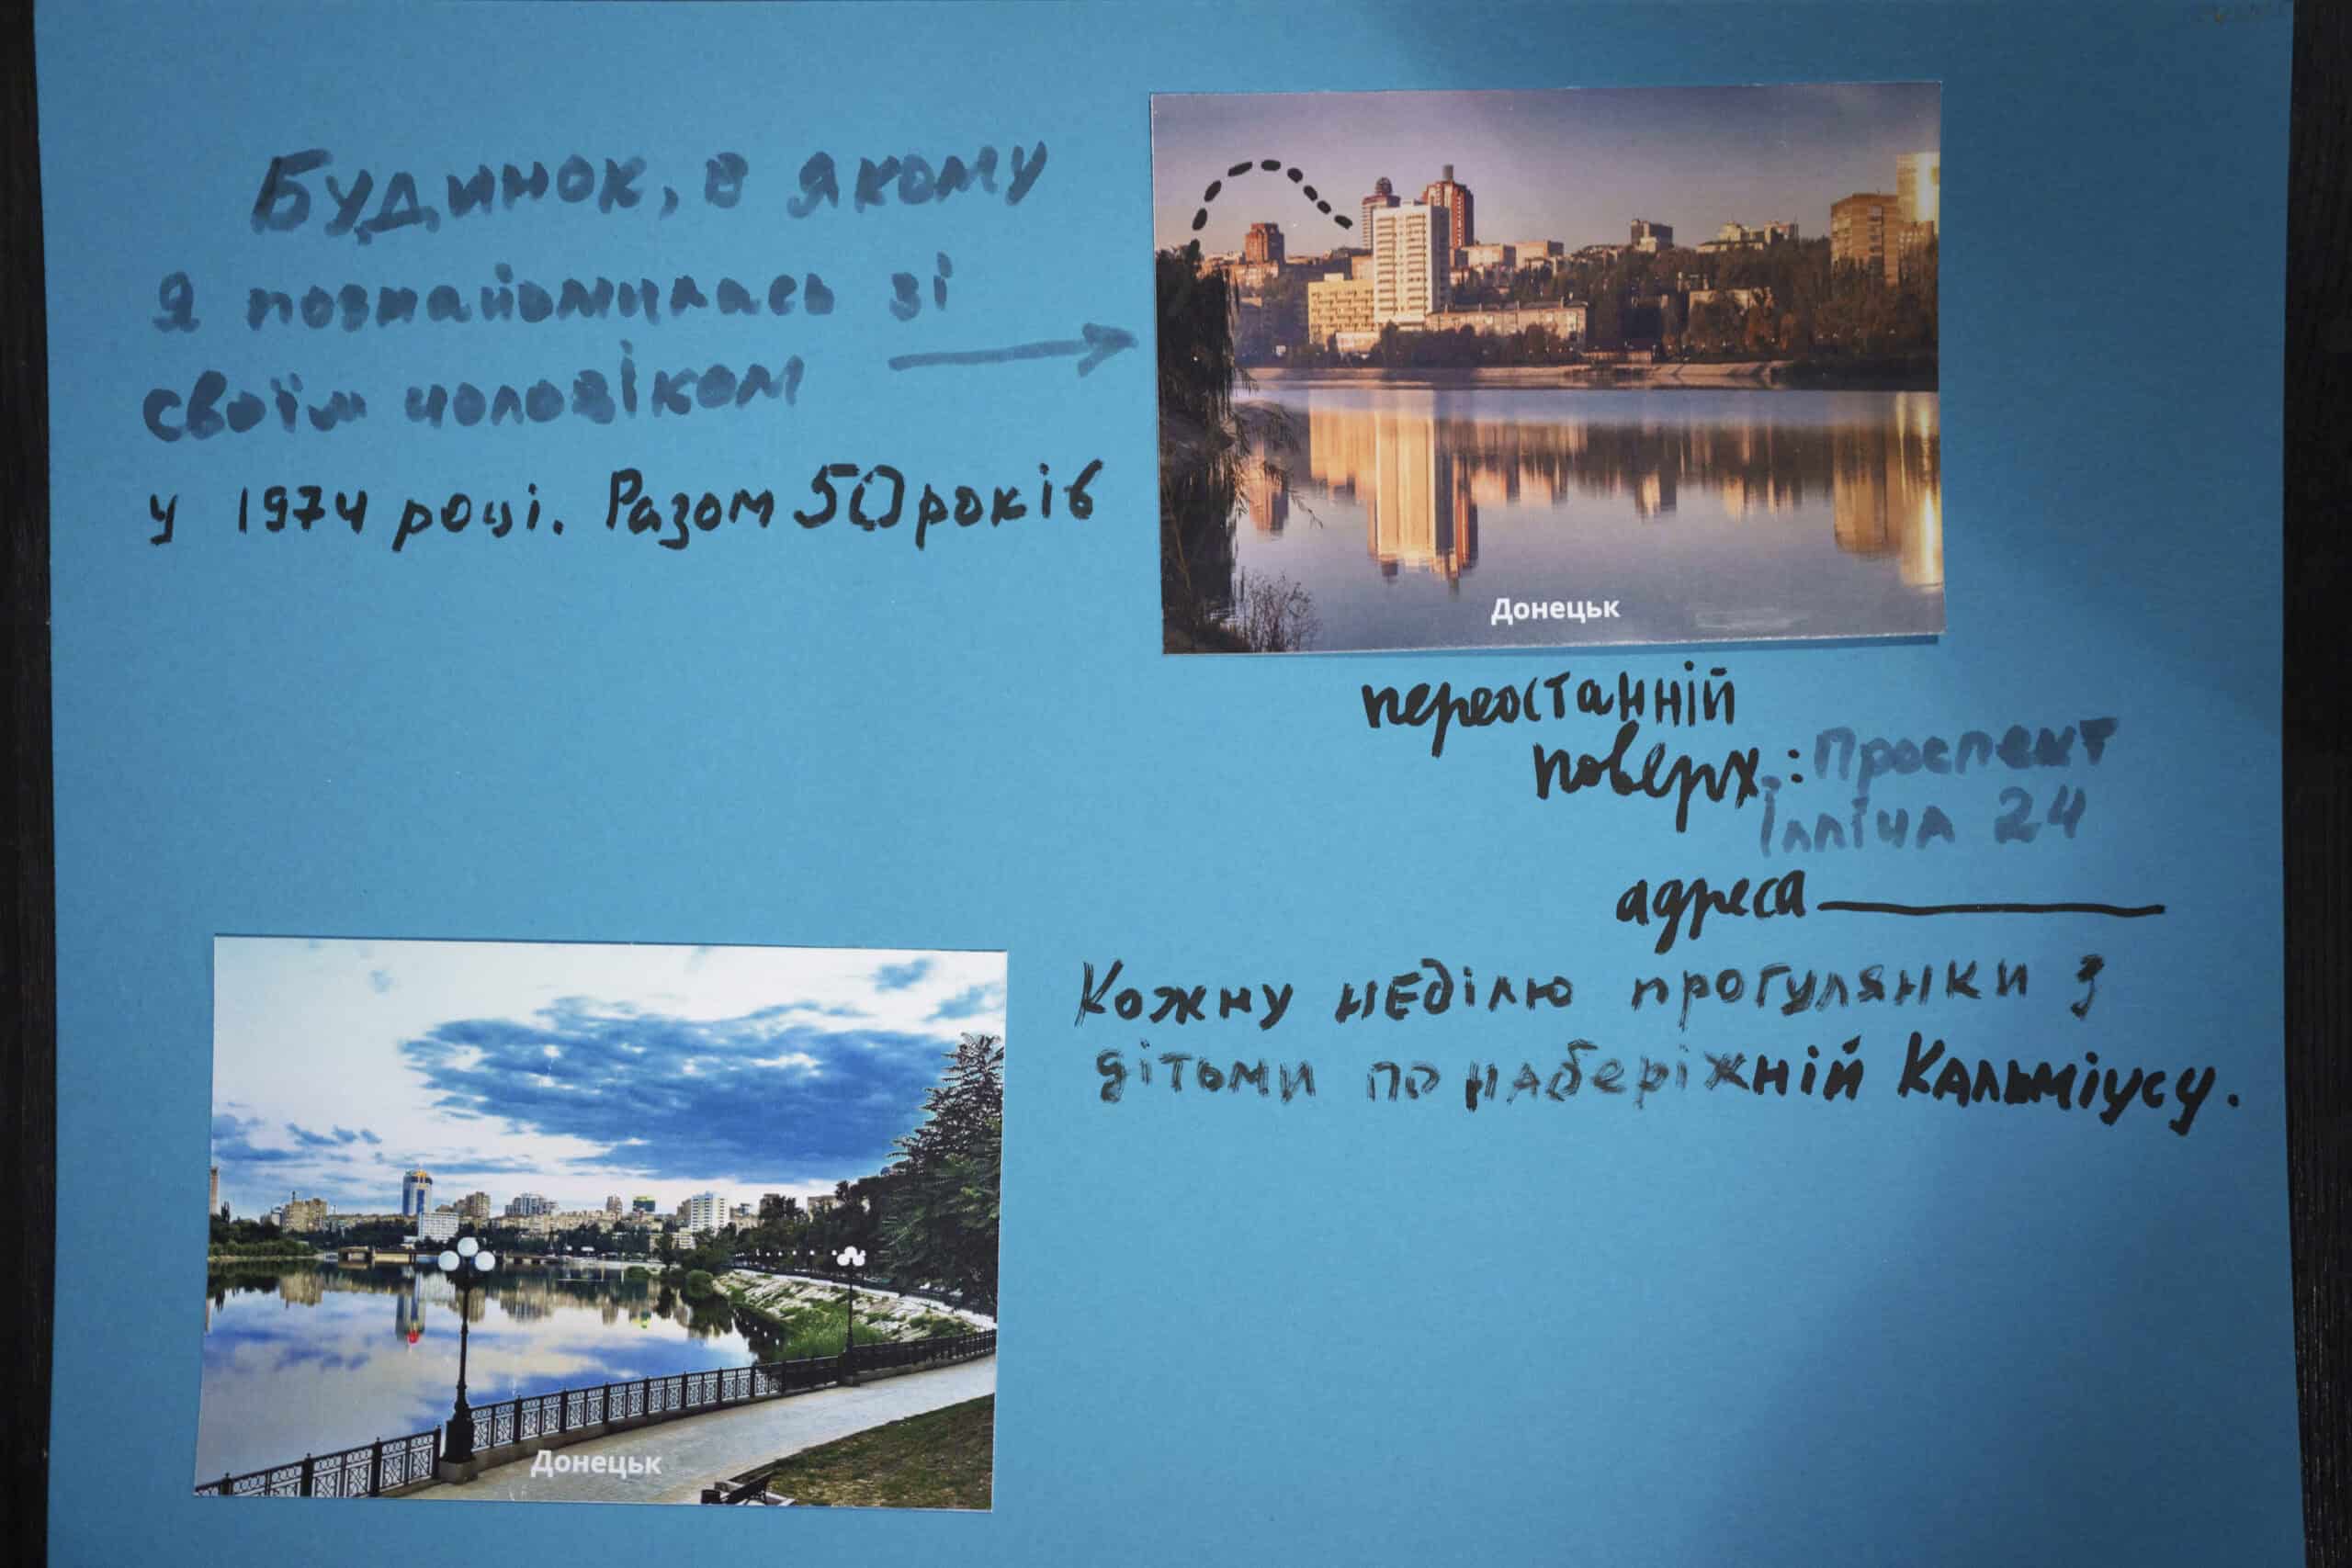 Будинок, в якому
я познайомилась зі
своїм чоловіком
у 1974 році. Разом 50 років
Донецьк
переостанній
поверх.: Проспект
Ілліча 24
адреса
Кожну неділю прогулянки з
дітьми по наберіжній Кальміусу.
Донецьк